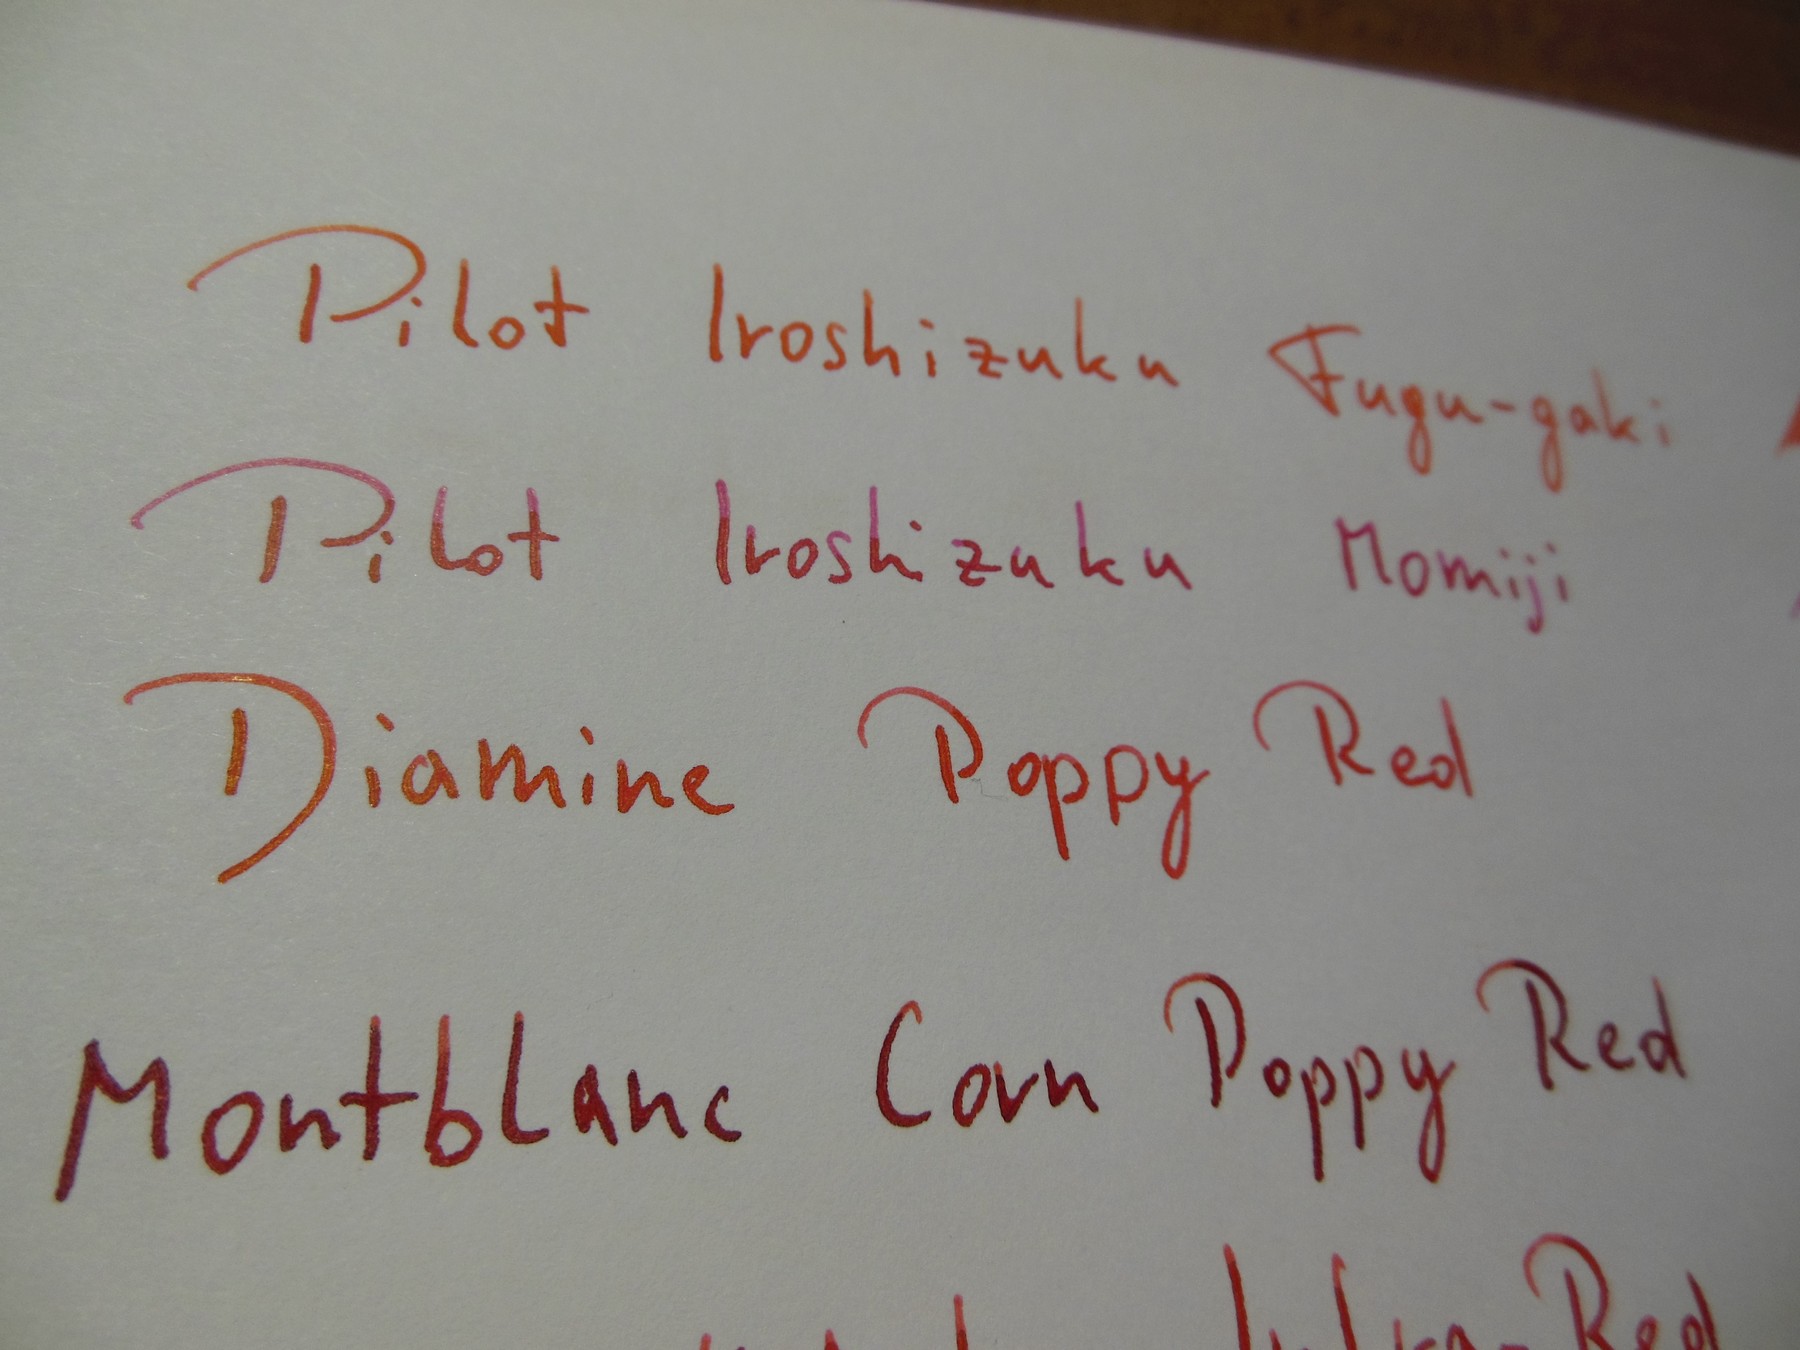 Pilot Iroshizuku Fugu-gaki
Pilot Iroshizuku Momiji
Diamine Poppy Red
Montblanc Corn Poppy Red
Red